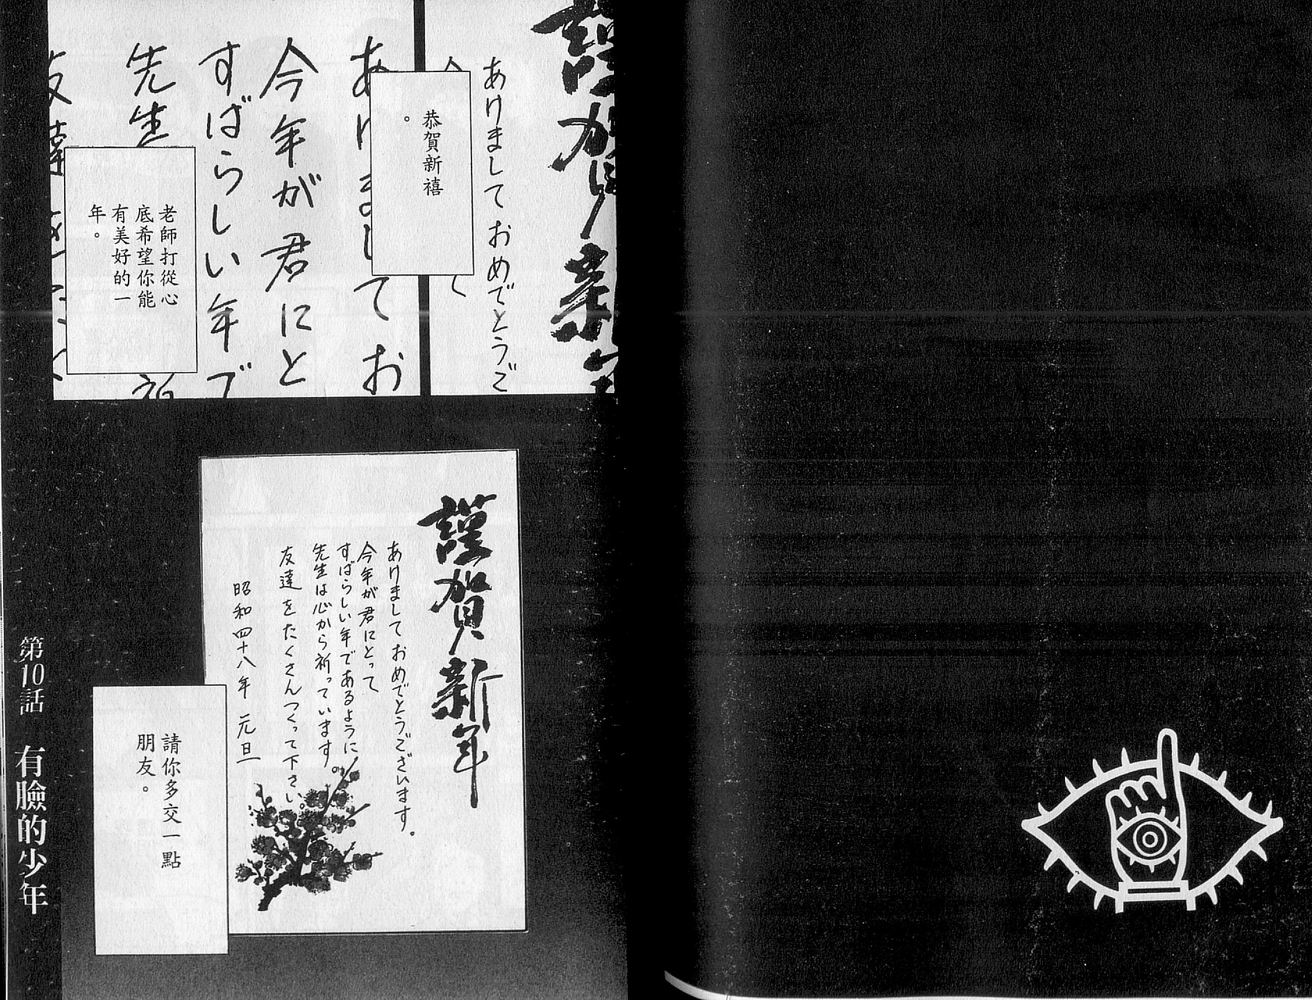 謹賀新年
あけましておめでとうご
恭賀新禧
。
あけましてお
今年が君にと
すばらしい年で
先生
友達
老師打從心
底希望你能
有美好的一
年。
謹賀新年
あけましておめでとうございます。
今年が君にとって
すばらしい年であるように
先生は心から祈っています。
友達をたくさんつくって下さい。
昭和四十八年 元旦
請你多交一點
朋友。
第10話 有臉的少年